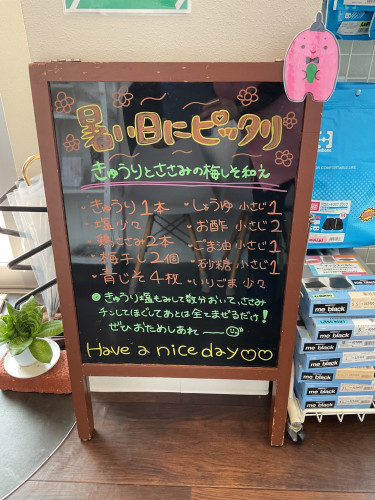 暑い日にピッタリ
きゅうりとささみの梅しそ和え
・きゅうり1本
・塩少々
・鶏ささみ2本
・梅干し2個
・青じそ4枚
・しょうゆ 小さじ1
・お酢 小さじ2
・ごま油 小さじ1
・砂糖 小さじ1
・いりごま 少々
●きゅうり塩もみして数分おいて、ささみ
チンしてほぐしてあとは全てまぜるだけ!
ぜひおためしあれ
Have a nice day♡♡
me black
me black
me black
me black
me black
me black